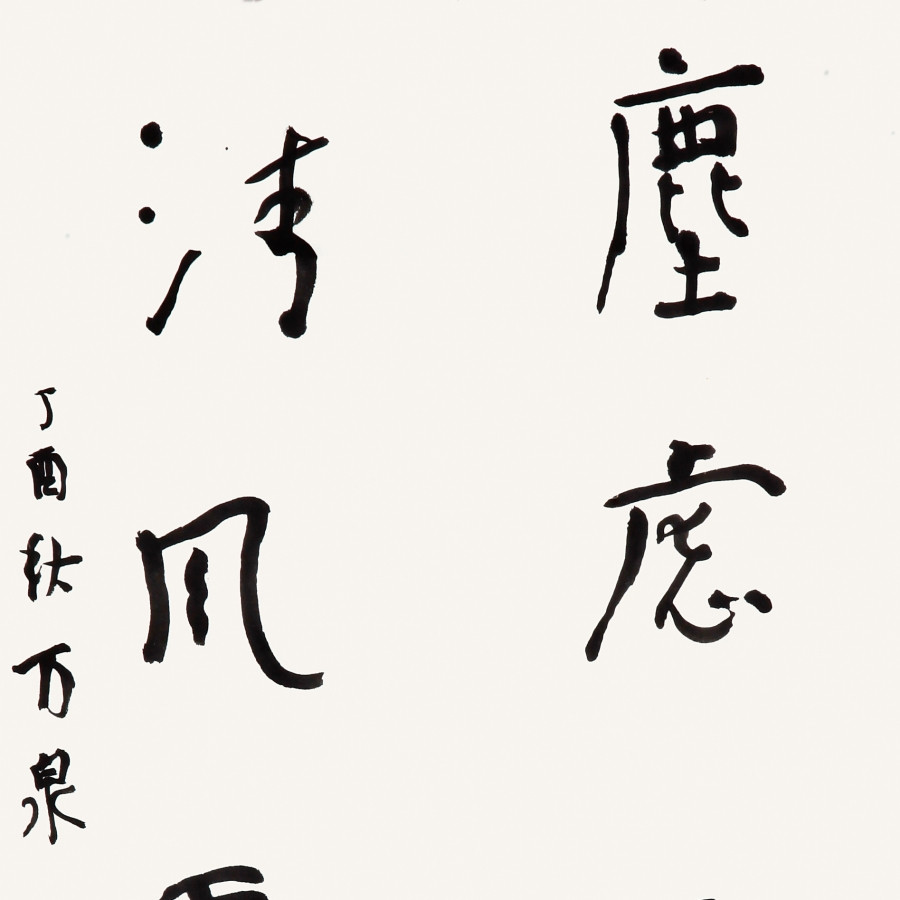 塵慮
清风
丁酉秋万泉